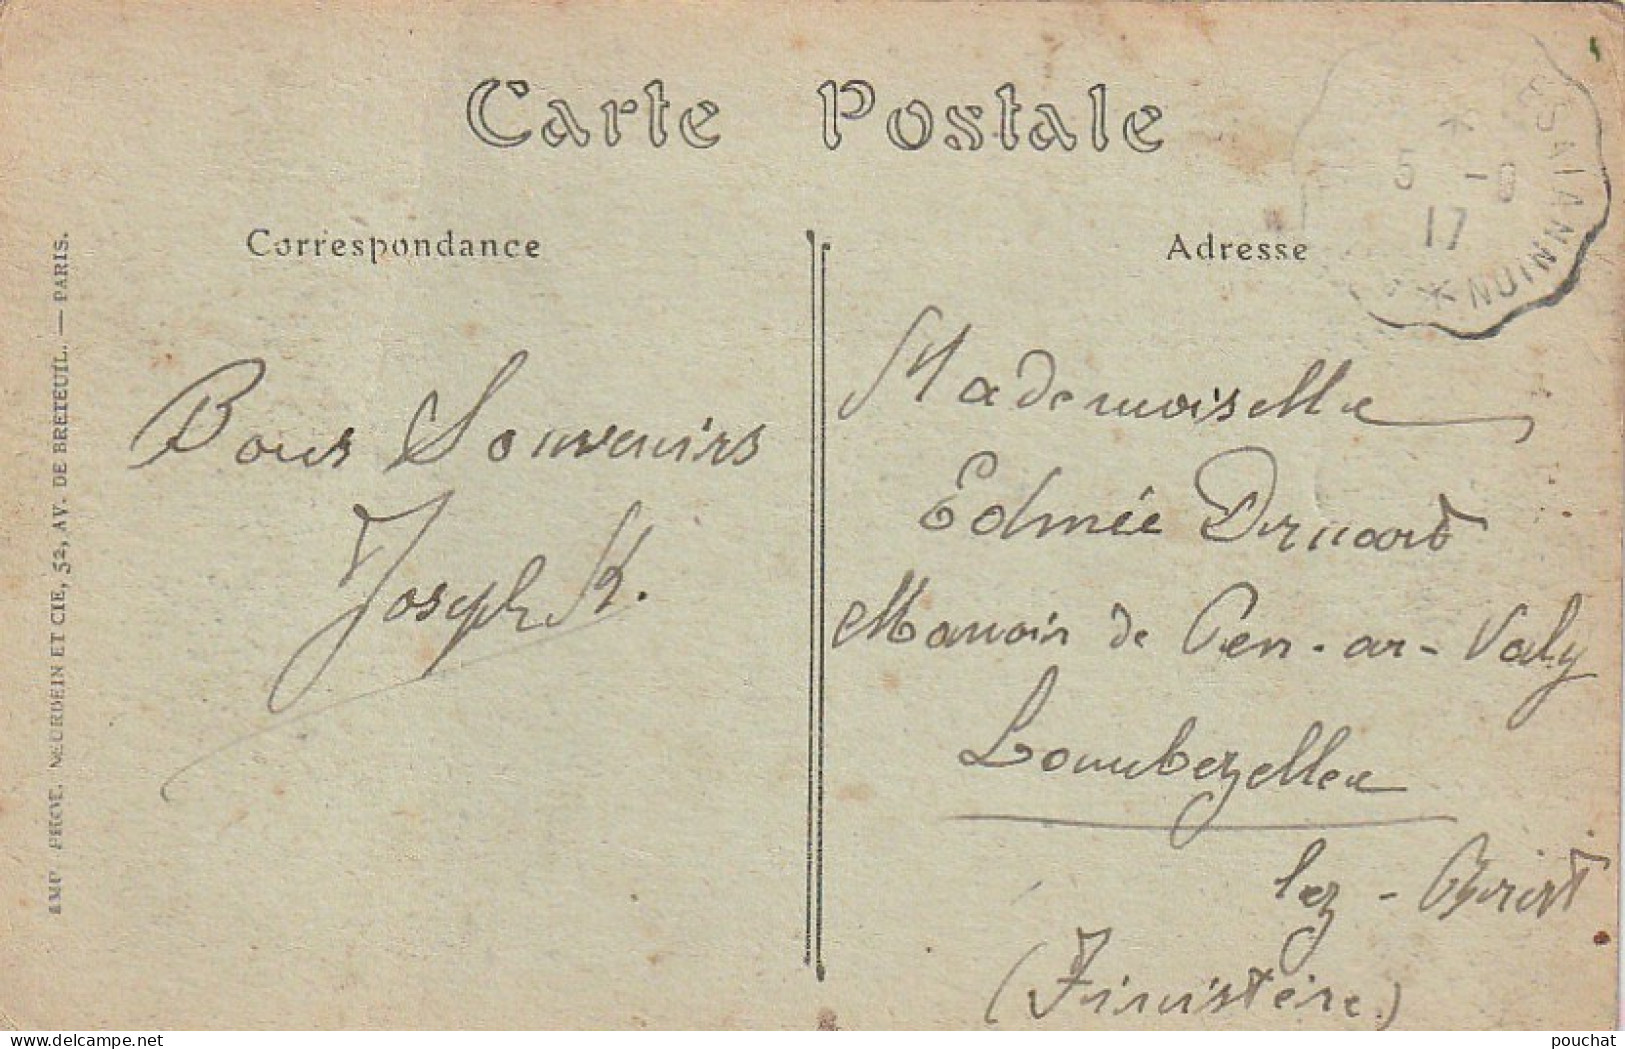 Carte Postale
Correspondance
Adresse
5 -
17
IMP. PHOT. NEURDEIN ET CIE, 52, AV. DE BRETEUIL. — PARIS.
Bons Souvenirs
Joseph K.
Mademoiselle
Edmée
Manoir de Pen-ar-Valy
Lambezellec
lez-Brest
(Finistère)
pouchat